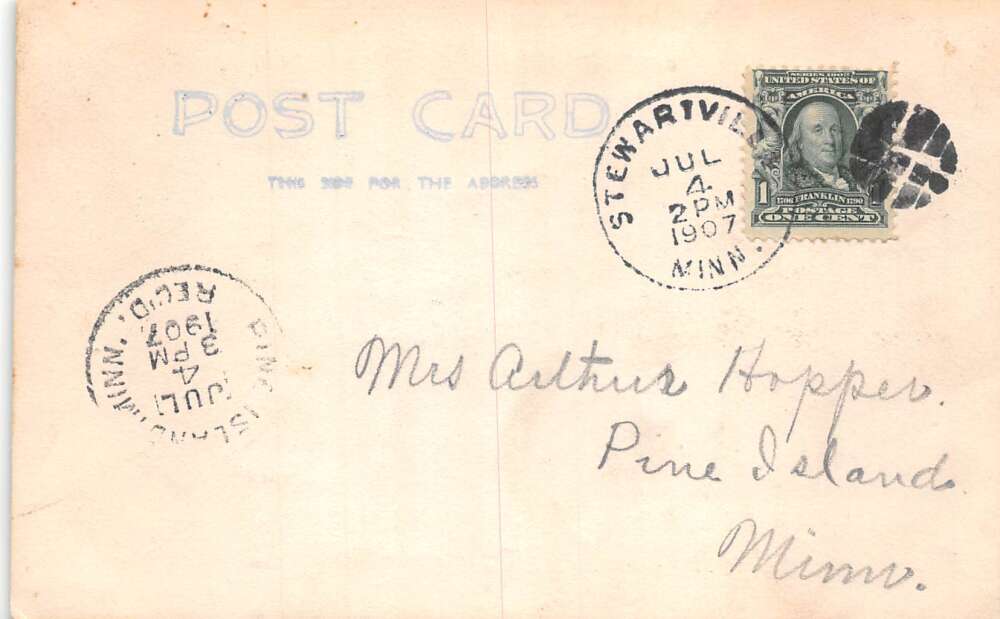 POST CARD
THIS SIDE FOR THE ADDRESS
STEWARTVILL
JUL
4
2 PM
1907
MINN.
SERIES 1902
UNITED STATES OF
AMERICA
1
1706 FRANKLIN 1790
POSTAGE
ONE CENT
PINE ISLAND, MINN.
JUL
4
3 PM
1907
REC'D.
Mrs Arthur Hopper.
Pine Island
Minn.